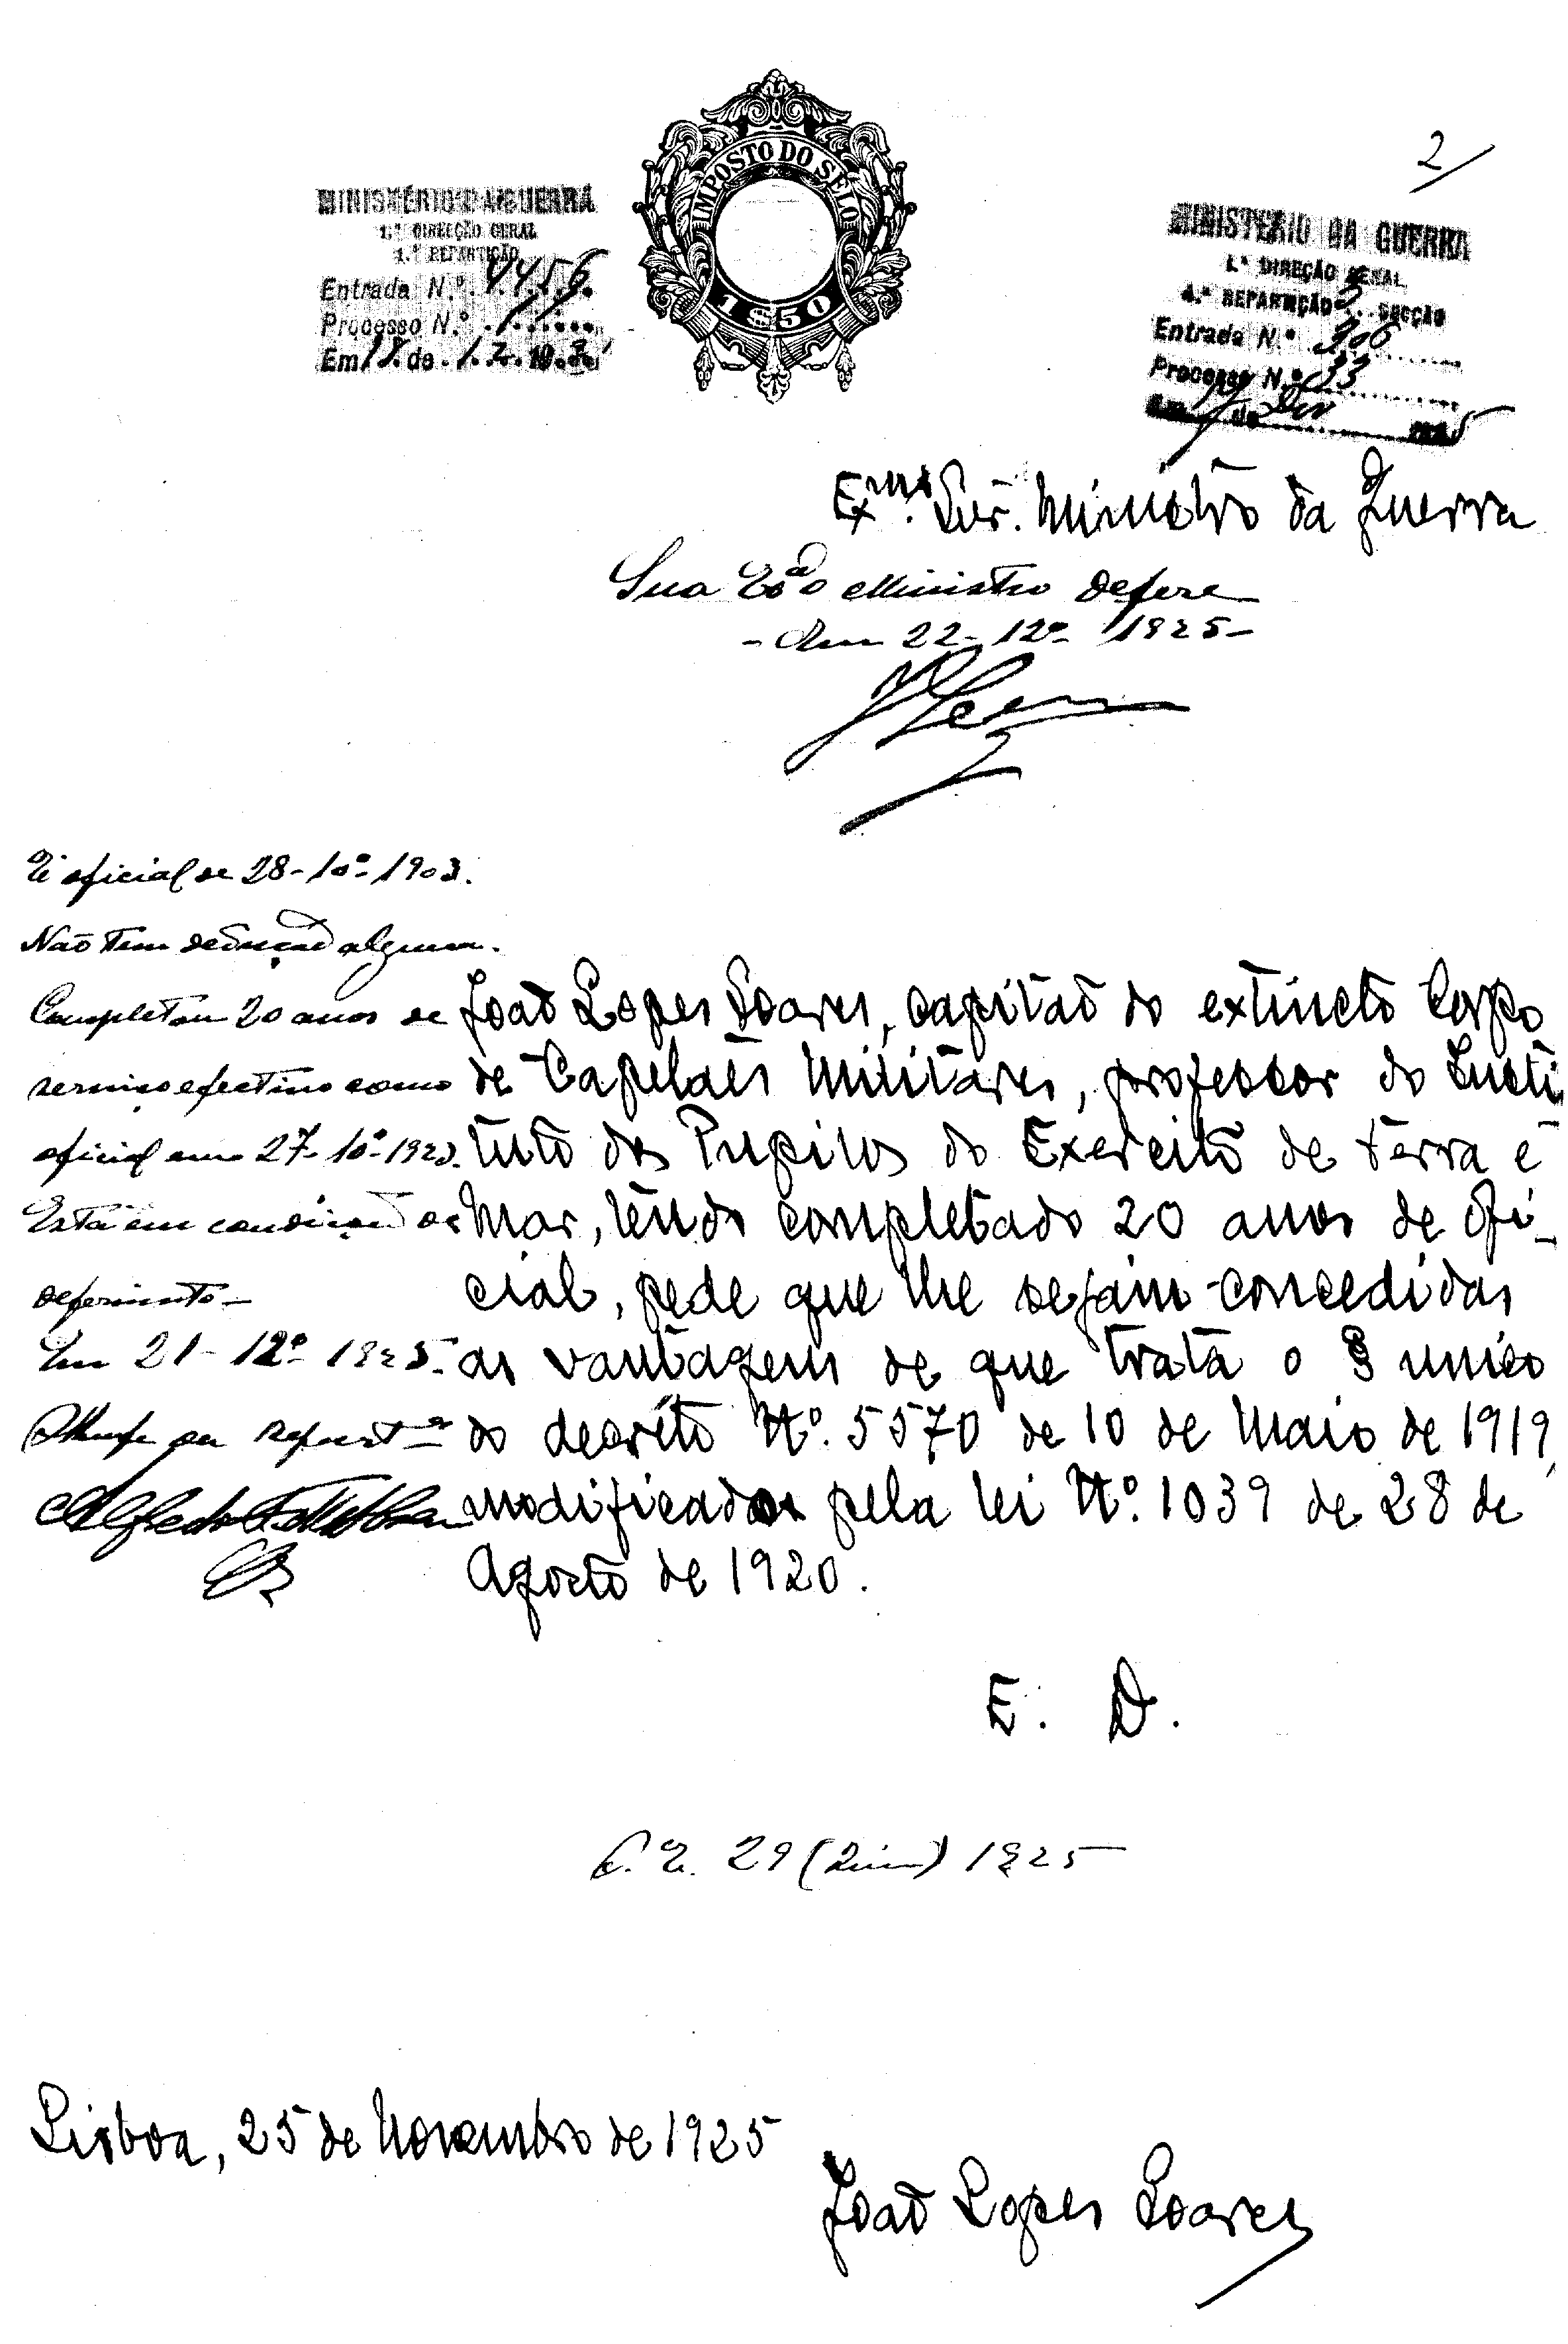 2
MINISTÉRIO DA GUERRA
1.ª DIRECÇÃO GERAL
1.ª REPARTIÇÃO
Entrada N.º 4456
Processo N.º
Em 18 de 12 192
IMPOSTO DO SELO
1$50
MINISTÉRIO DA GUERRA
1.ª DIREÇÃO GERAL
4.ª REPARTIÇÃO SECÇÃO
Entrada N.º 306
Processo N.º 33
Exmo. Snr. Ministro da Guerra
Sua Exa o Ministro defere
- Em 22-12º- 1925-
É oficial de 28-10º-1903.
Não tem dedução alguma.
Completou 20 anos de
serviço efectivo como
oficial em 27-10º-1923.
Está em condições de
deferimento-
Em 21-12º-1925-
João Lopes Soares, capitão do extincto Corpo
de Capelães Militares, professor do Insti
tuto dos Pupilos do Exercito de terra e
Mar, tendo completado 20 anos de ofi-
cial, pede que lhe sejam concedidas
as vantagens de que trata o § unico
do decreto Nº. 5570 de 10 de Maio de 1919,
modificados pela lei Nº. 1039 de 28 de
Agosto de 1920.
E. D.
29 1925
Lisboa, 25 de Novembro de 1925
João Lopes Soares